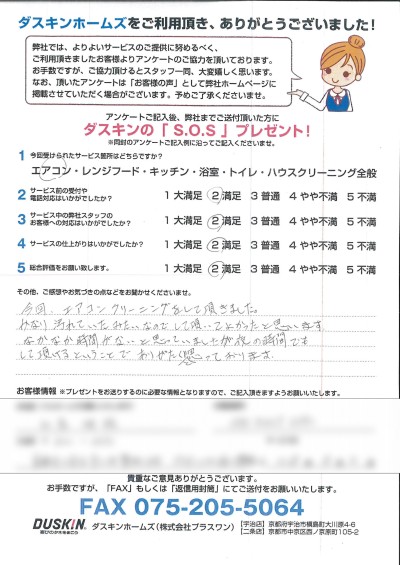 ダスキンホームズをご利用頂き、ありがとうございました!
弊社では、よりよいサービスのご提供に努めるべく、
ご利用頂きましたお客様よりアンケートのご協力を頂いております。
お手数ですが、ご協力頂けるとスタッフ一同、大変嬉しく思います。
なお、頂いたアンケートは「お客様の声」として弊社ホームページに
掲載させていただく場合がございます。予めご了承くださいませ。
アンケートご記入後、弊社までご送付頂いた方に
ダスキンの「S.O.S」プレゼント!
※同封のアンケートご記入例に沿ってご記入くださいませ。
1 今回受けられたサービス箇所はどちらですか?
エアコン・レンジフード・キッチン・浴室・トイレ・ハウスクリーニング全般
2 サービス前の受付や
電話対応はいかがでしたか? 1 大満足 2 満足 3 普通 4 やや不満 5 不満
3 サービス中の弊社スタッフの
お客様への対応はいかがでしたか? 1 大満足 2 満足 3 普通 4 やや不満 5 不満
4 サービスの仕上がりはいかがでしたか? 1 大満足 2 満足 3 普通 4 やや不満 5 不満
5 総合評価をお願い致します。 1 大満足 2 満足 3 普通 4 やや不満 5 不満
その他、ご感想やお気づきの点などをお聞かせくださいませ。
今回、エアコンクリーニングをして頂きました。
かなり汚れていたみたいなのでして頂いてよかったと思います。
なかなか時間がないと思っていましたが夜の時間でも
して頂けるということでありがたく思っております。
お客様情報 ※プレゼントをお送りするのに必要な情報となりますので、ご記入頂きますようお願いいたします。
貴重なご意見ありがとうございます。
お手数ですが、「FAX」もしくは「返信用封筒」にてご送付をお願いいたします。
FAX 075-205-5064
DUSKIN ダスキンホームズ(株式会社プラスワン)
喜びのタネをまこう
[宇治店] 京都府宇治市槇島町大川原4-6
[二条店] 京都市中京区西ノ京原町105-2